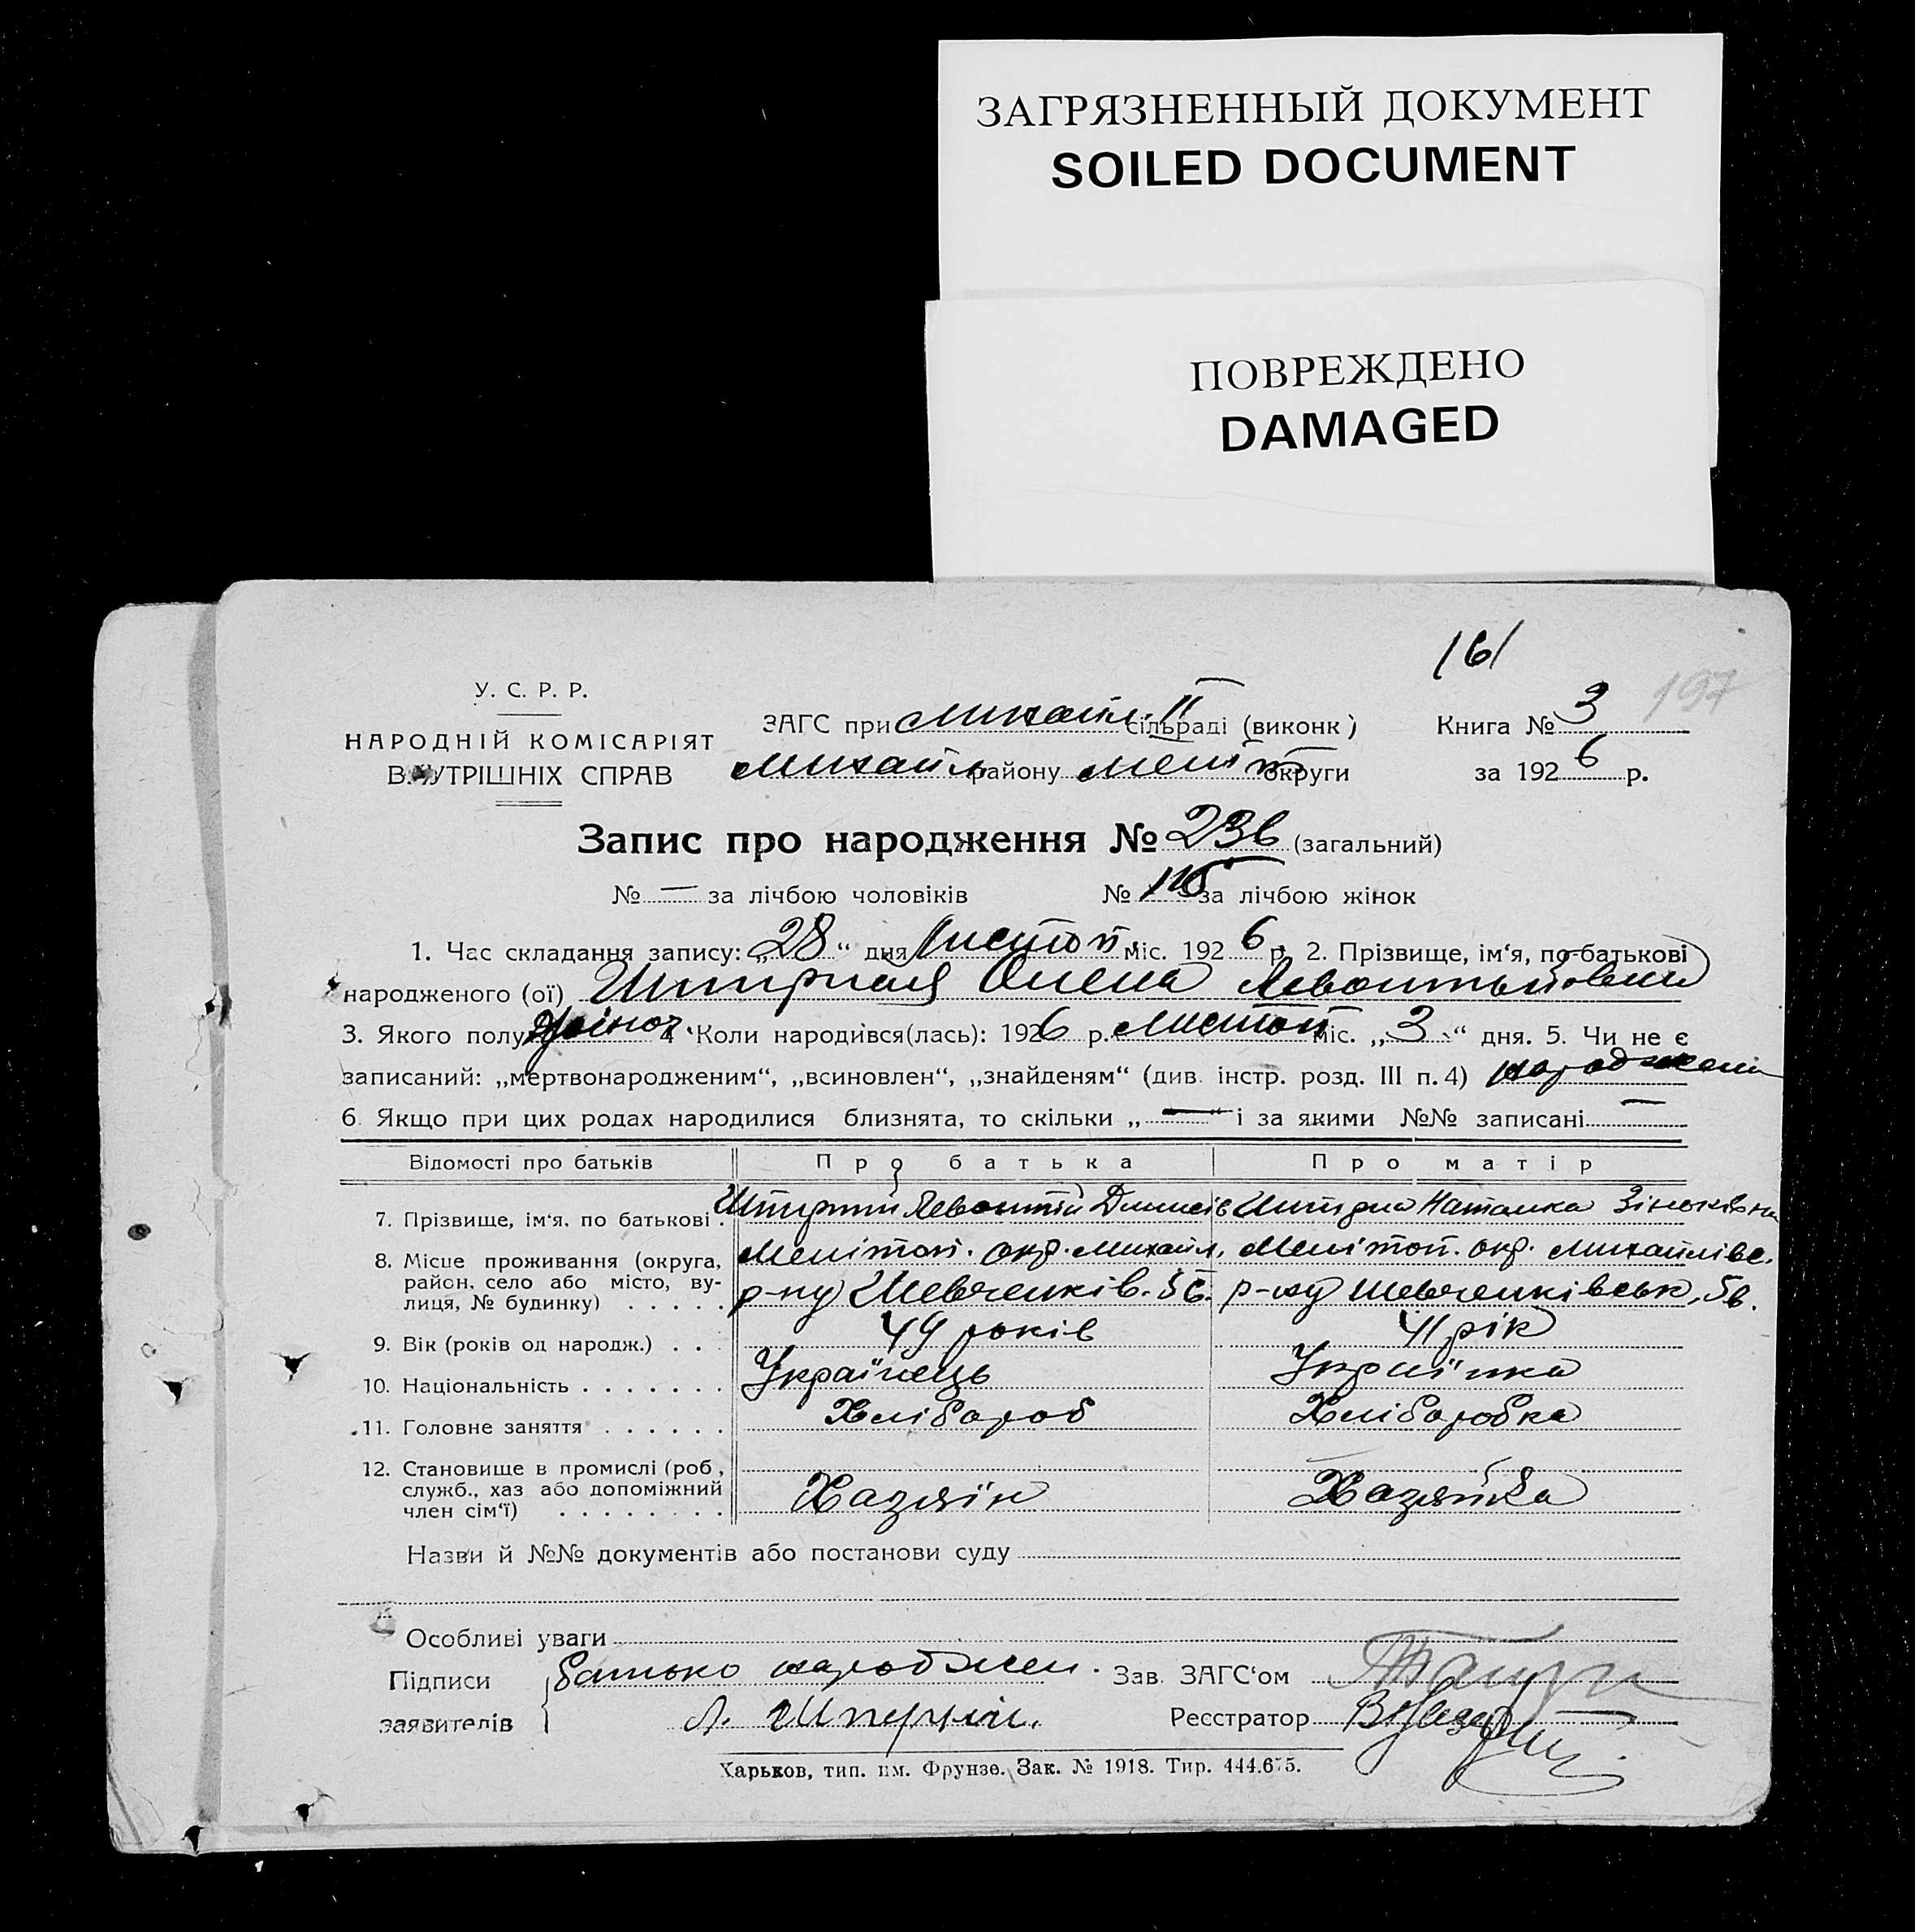 ЗАГРЯЗНЕННЫЙ ДОКУМЕНТ
SOILED DOCUMENT
ПОВРЕЖДЕНО
DAMAGED
161
197
У. С. Р. Р.
НАРОДНІЙ КОМІСАРІЯТ
ВНУТРІШНІХ СПРАВ
ЗАГС при Михайл. II сільраді (виконк)
Михайл. району Меліт округи
Книга № 3
за 1926 р.
Запис про народження № 236 (загальний)
№ — за лічбою чоловіків № 115 за лічбою жінок
1. Час складання запису: „28“ дня Листоп міс. 1926 р. 2. Прізвище, ім‘я, по-батькові
народженого (ої) Олена
3. Якого полу жіноч. 4 Коли народився(лась): 1926 р. Листоп міс. „3“ дня. 5. Чи не є
записаний: „мертвонародженим“, „всиновлен“, „знайденям“ (див. інстр. розд. III п. 4)
6. Якщо при цих родах народилися близнята, то скільки „—“ і за якими №№ записані —
Відомості про батьків Про батька Про матір
7. Прізвище, ім‘я, по батькові . Левонтій Наталка Зіньківна
8. Місце проживання (округа, Мелітоп. окр. Михайл. Мелітоп. окр. Михайлівс.
район, село або місто, ву-
лиця, № будинку) . . . . . р-ну Шевченків. р-ну Шевченківськ,
9. Вік (років од народж.) . . . 49 років 41 рік
10. Національність . . . . . . . Українець Українка
11. Головне заняття . . . . . . Хлібороб Хліборобка
12. Становище в промислі (роб,
служб., хаз або допоміжний Хазяїн Хазяйка
член сім‘ї) . . . . . . . .
Назви й №№ документів або постанови суду
Особливі уваги
Підписи батько народжен. Зав. ЗАГС‘ом
заявителів Л. Реєстратор
Харьков, тип. им. Фрунзе. Зак. № 1918. Тир. 444.675.